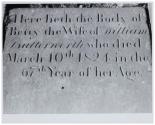 Here lieth the Body of
Betty the Wife of William
Butterworth who died
March 10th 1824 in the
67th Year of her Age.